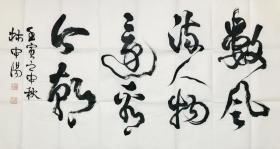 數風
流人物
還看
今朝
壬寅之中秋
林中陽